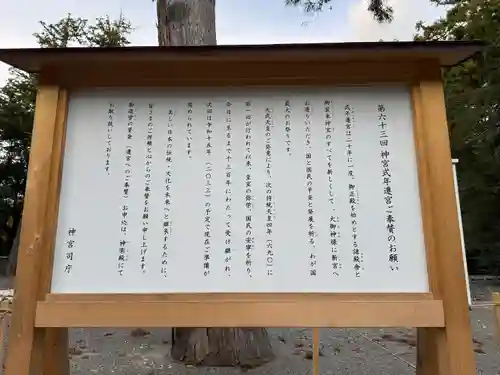 第六十三回 神宮式年遷宮ご奉賛のお願い
式年遷宮は二十年に一度、御正殿を始めとする諸殿舎と
御装束神宝のすべてを新しくして、大御神様に新宮へ
お遷りいただき、国と国民の平安と発展を祈る、わが国
最大のお祭りです。
天武天皇のご発意により、次の持統天皇四年（六九〇）に
第一回が行われて以来、皇室の弥栄、国民の安寧を祈り、
今日に至るまで千三百年にわたって受け継がれ、
次回は令和十五年（二〇三三）の予定で現在ご準備が
進められています。
美しい日本の伝統、文化を未来へと継承するために、
皆さまのご浄財と心からのご奉賛をお願い申し上げます。
御造営の資金（遷宮へのご奉賛）お申込は、神楽殿にて
お取り扱いしております。
神宮司庁